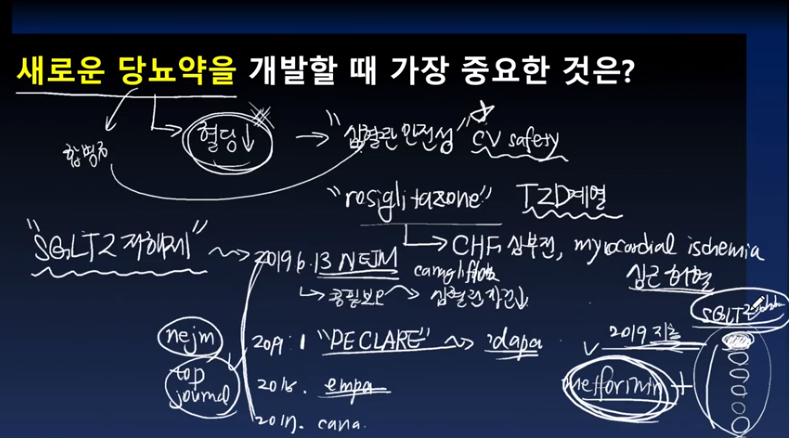 새로운 당뇨약을 개발할 때 가장 중요한 것은?
합병증
혈당↓ → "심혈관 안전성" CV safety
"rosiglitazone" TZD계열
→ CHF 심부전, myocardial ischemia
심근허혈
"SGLT2 저해제"
2019 6.13 NEJM
→ 콩팥보호 심혈관 사건↓
nejm
top journal
2019.1 "DECLARE" dapa
empa
cana.
2019 지침
metformin +
SGLT2